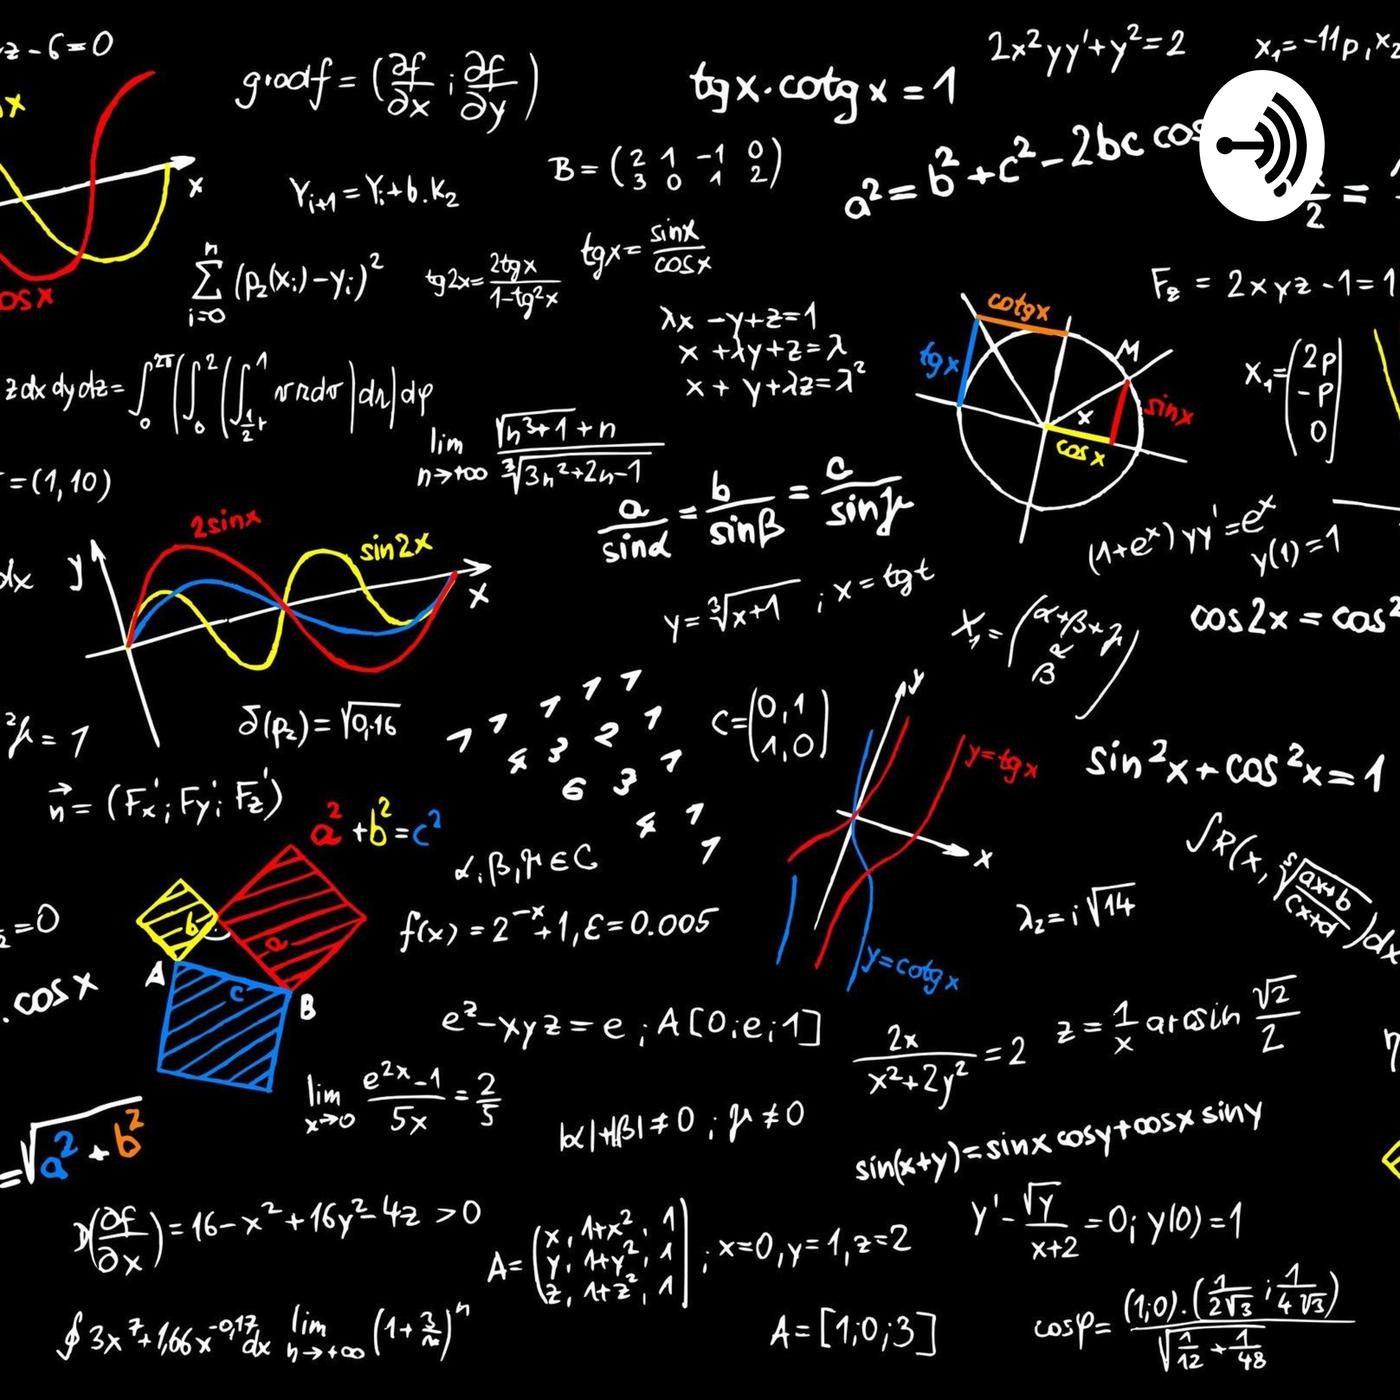 z-6=0
gradf = (∂f/∂x ; ∂f/∂y)
tgx.cotgx = 1
2x²yy'+y²=2
x₁=-11p, x₂
x
B = (2 1 -1 0
3 0 1 2)
a² = b²+c²-2bc cos
/2 =
Yᵢ₊₁ = Yᵢ+b.K₂
x
cos x
n
∑ (p₂(xᵢ)-yᵢ)²
i=0
tg2x = 2tgx/1-tg²x
tgx = sinx/cosx
F_z = 2xyz-1=1
λx -y+z=1
x +λy+z=λ
x + y+λz=λ²
cotgx
tgx
M
x
sinx
cosx
X₁ = (2p
-p
0)
zdxdydz =
lim n→+∞ √n³+1 + n / ∛3n²+2n-1
=(1,10)
a/sinα = b/sinβ = c/sinγ
(1+eˣ)yy'=eˣ
y(1)=1
dx
y
2sinx
sin2x
x
y = ∛x+1 ; x = tgt
X₁ = (α+β+γ
α
β)
cos2x = cos²
²γ=1
δ(p₂)=√0,16
1 1 1 1 1
4 3 2 1
6 3 1
4 1
1
C = (0,1
1,0)
y
y=tgx
x
y=cotgx
sin²x+cos²x=1
n⃗ = (Fx'; Fy'; Fz')
a²+b²=c²
α,β,γ∈C
∫R(x, ⁵√ax+b/cx+d)dx
b
a
c
A
B
₂=0
f(x) = 2⁻ˣ+1, ε=0.005
λ₂=i√14
. cosx
eᶻ-xyz=e ; A[0;e;1]
2x/x²+2y² = 2
z = 1/x arcsin √2/2
lim x→0 e²ˣ-1/5x = 2/5
=√a²+b²
|α|+|β|≠0 ; γ≠0
sin(x+y)=sinx cosy+cosx siny
(∂f/∂x) = 16-x²+16y²-4z >0
A = (x, 1+x², 1
y, 1+y², 1
z, 1+z², 1) ; x=0, y=1, z=2
y'-√y/x+2 = 0; y(0)=1
∮3x⁷+1,66x⁻⁰·¹⁷dx
lim n→+∞ (1+3/n)ⁿ
A = [1;0;3]
cosφ = (1;0).(1/2√3 ; 1/4√3) / √1/12 + 1/48